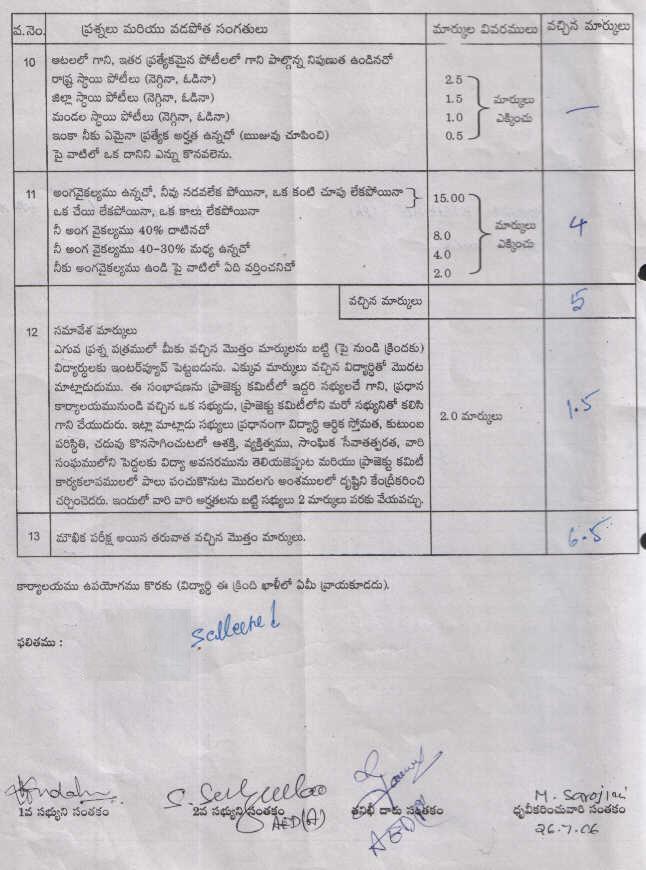 వ.నెం. ప్రశ్నలు మరియు వడపోత సంగతులు మార్కుల వివరములు వచ్చిన మార్కులు
10 ఆటలలో గాని, ఇతర ప్రత్యేకమైన పోటీలలో గాని పాల్గొన్న నిపుణుత ఉండినచో
రాష్ట్ర స్థాయి పోటీలు (నెగ్గినా, ఓడినా) 2.5
జిల్లా స్థాయి పోటీలు (నెగ్గినా, ఓడినా) 1.5 మార్కులు
మండల స్థాయి పోటీలు (నెగ్గినా, ఓడినా) 1.0 ఎక్కించు
ఇంకా నీకు ఏమైనా ప్రత్యేక అర్హత ఉన్నచో (ఋజువు చూపించి) 0.5
పై వాటిలో ఒక దానిని ఎన్ను కొనవలెను.
11 అంగవైకల్యము ఉన్నచో, నీవు నడవలేక పోయినా, ఒక కంటి చూపు లేకపోయినా 15.00
ఒక చేయి లేకపోయినా, ఒక కాలు లేకపోయినా
నీ అంగ వైకల్యము 40% దాటినచో 8.0 మార్కులు
నీ అంగ వైకల్యము 40-30% మధ్య ఉన్నచో 4.0 ఎక్కించు 4
నీకు అంగవైకల్యము ఉండి పై వాటిలో ఏది వర్తించనిచో 2.0
వచ్చిన మార్కులు 5
12 సమావేశ మార్కులు
ఎగువ ప్రశ్న పత్రములో మీకు వచ్చిన మొత్తం మార్కులను బట్టి (పై నుండి క్రిందకు)
విద్యార్థులకు ఇంటర్వ్యూవ్ పెట్టబడును. ఎక్కువ మార్కులు వచ్చిన విద్యార్థితో మొదట
మాట్లాడుదుము. ఈ సంభాషణను ప్రాజెక్టు కమిటీలో ఇద్దరి సభ్యులచే గాని, ప్రధాన
కార్యాలయమునుండి వచ్చిన ఒక సభ్యుడు, ప్రాజెక్టు కమిటీలోని మరో సభ్యునితో కలిసి
గాని చేయుదురు. ఇట్లా మాట్లాడు సభ్యులు ప్రధానంగా విద్యార్థి ఆర్థిక స్తోమత, కుటుంబ 2.0 మార్కులు 1.5
పరిస్థితి, చదువు కొనసాగించుటలో ఆశక్తి, వ్యక్తిత్వము, సాంఘిక సేవాతత్పరత, వారి
సంఘములోని పెద్దలకు విద్యా అవసరమును తెలియజెప్పుట మరియు ప్రాజెక్టు కమిటీ
కార్యకలాపములలో పాలు పంచుకొనుట మొదలగు అంశములలో దృష్టిని కేంద్రీకరించి
చర్చించెదరు. ఇందులో వారి వారి అర్హతలను బట్టి సభ్యులు 2 మార్కులు వరకు వేయవచ్చు.
13 మౌఖిక పరీక్ష అయిన తరువాత వచ్చిన మొత్తం మార్కులు. 6.5
కార్యాలయము ఉపయోగము కొరకు (విద్యార్థి ఈ క్రింది ఖాళీలో ఏమీ వ్రాయకూడదు).
ఫలితము :
M. Sarojini
1వ సభ్యుని సంతకం 2వ సభ్యుని సంతకం తనిఖీ దారు సంతకం ధృవీకరించువారి సంతకం
AED(A) 26.7.06